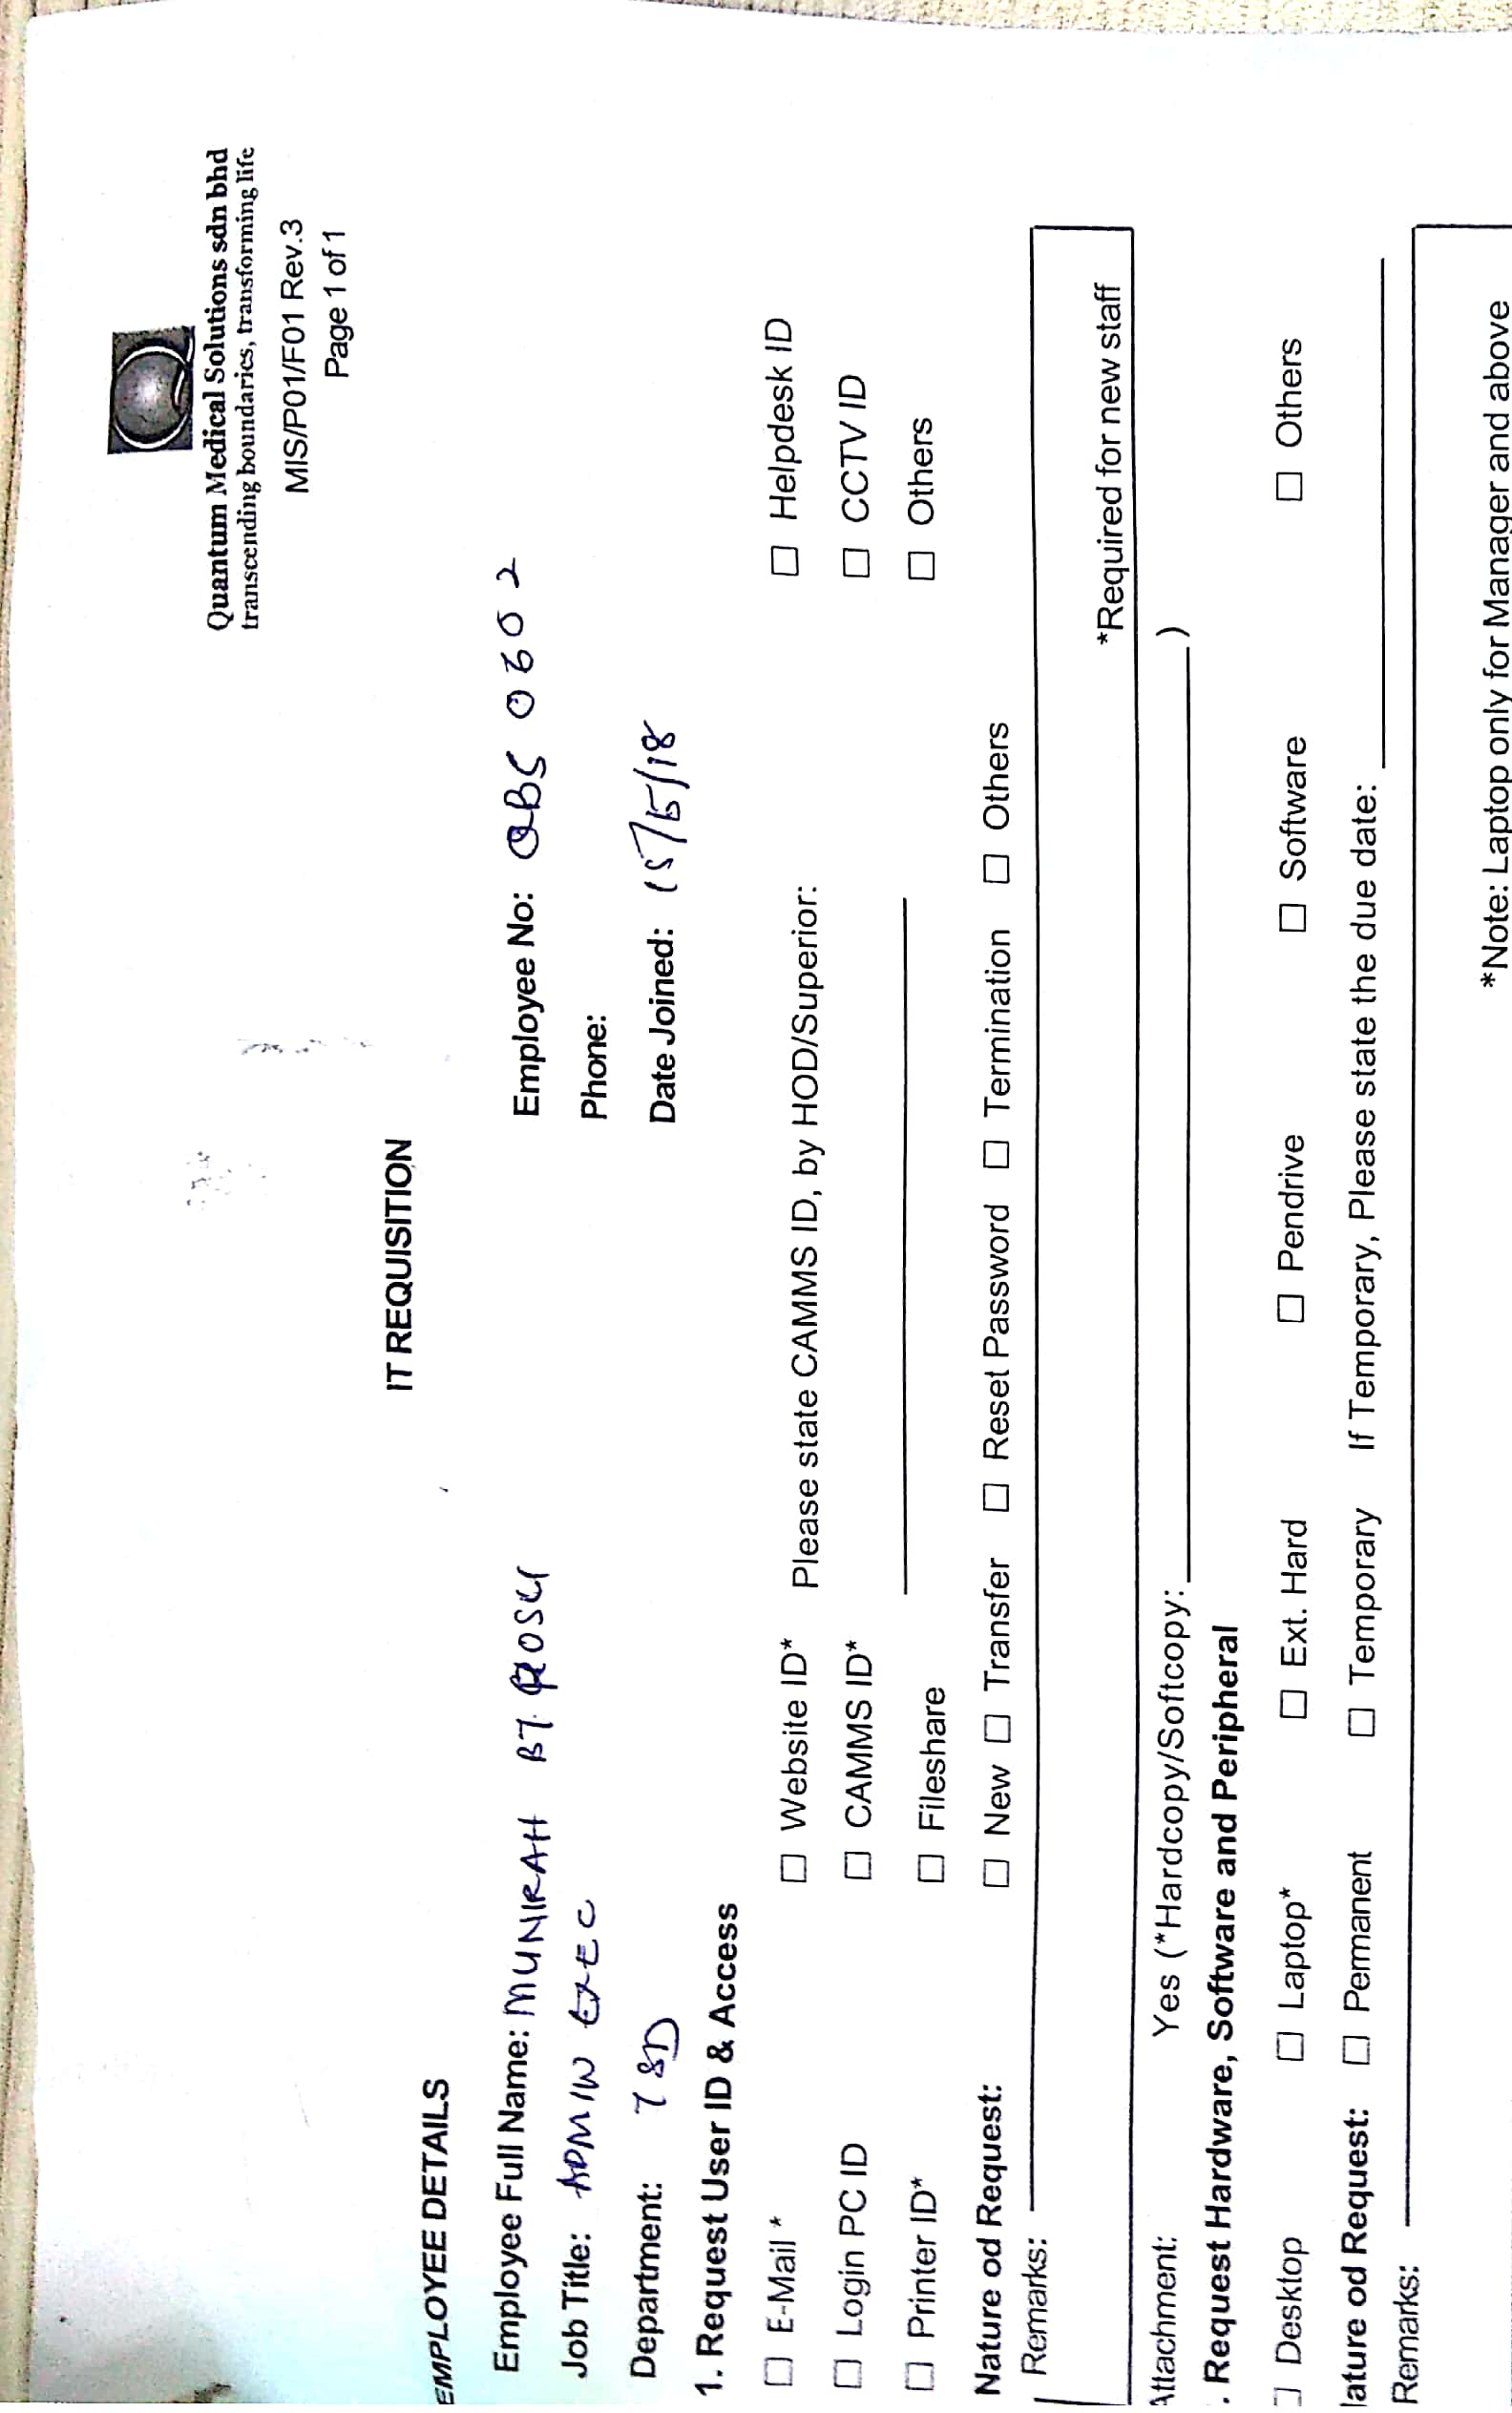 Quantum Medical Solutions sdn bhd
transcending boundaries, transforming life
MIS/P01/F01 Rev.3
Page 1 of 1
IT REQUISITION
EMPLOYEE DETAILS
Employee Full Name: MUNIRAH BT ROSLI Employee No: QBS 0602
Job Title: ADMIN EXEC Phone:
Department: TSD Date Joined: 15/5/18
1. Request User ID & Access
☐ E-Mail * ☐ Website ID* Please state CAMMS ID, by HOD/Superior: ☐ Helpdesk ID
☐ Login PC ID ☐ CAMMS ID* ☐ CCTV ID
☐ Printer ID* ☐ Fileshare ☐ Others
Nature od Request: ☐ New ☐ Transfer ☐ Reset Password ☐ Termination ☐ Others
Remarks:
*Required for new staff
Attachment: Yes (*Hardcopy/Softcopy: )
. Request Hardware, Software and Peripheral
☐ Desktop ☐ Laptop* ☐ Ext. Hard ☐ Pendrive ☐ Software ☐ Others
lature od Request: ☐ Permanent ☐ Temporary If Temporary, Please state the due date:
Remarks:
*Note: Laptop only for Manager and above